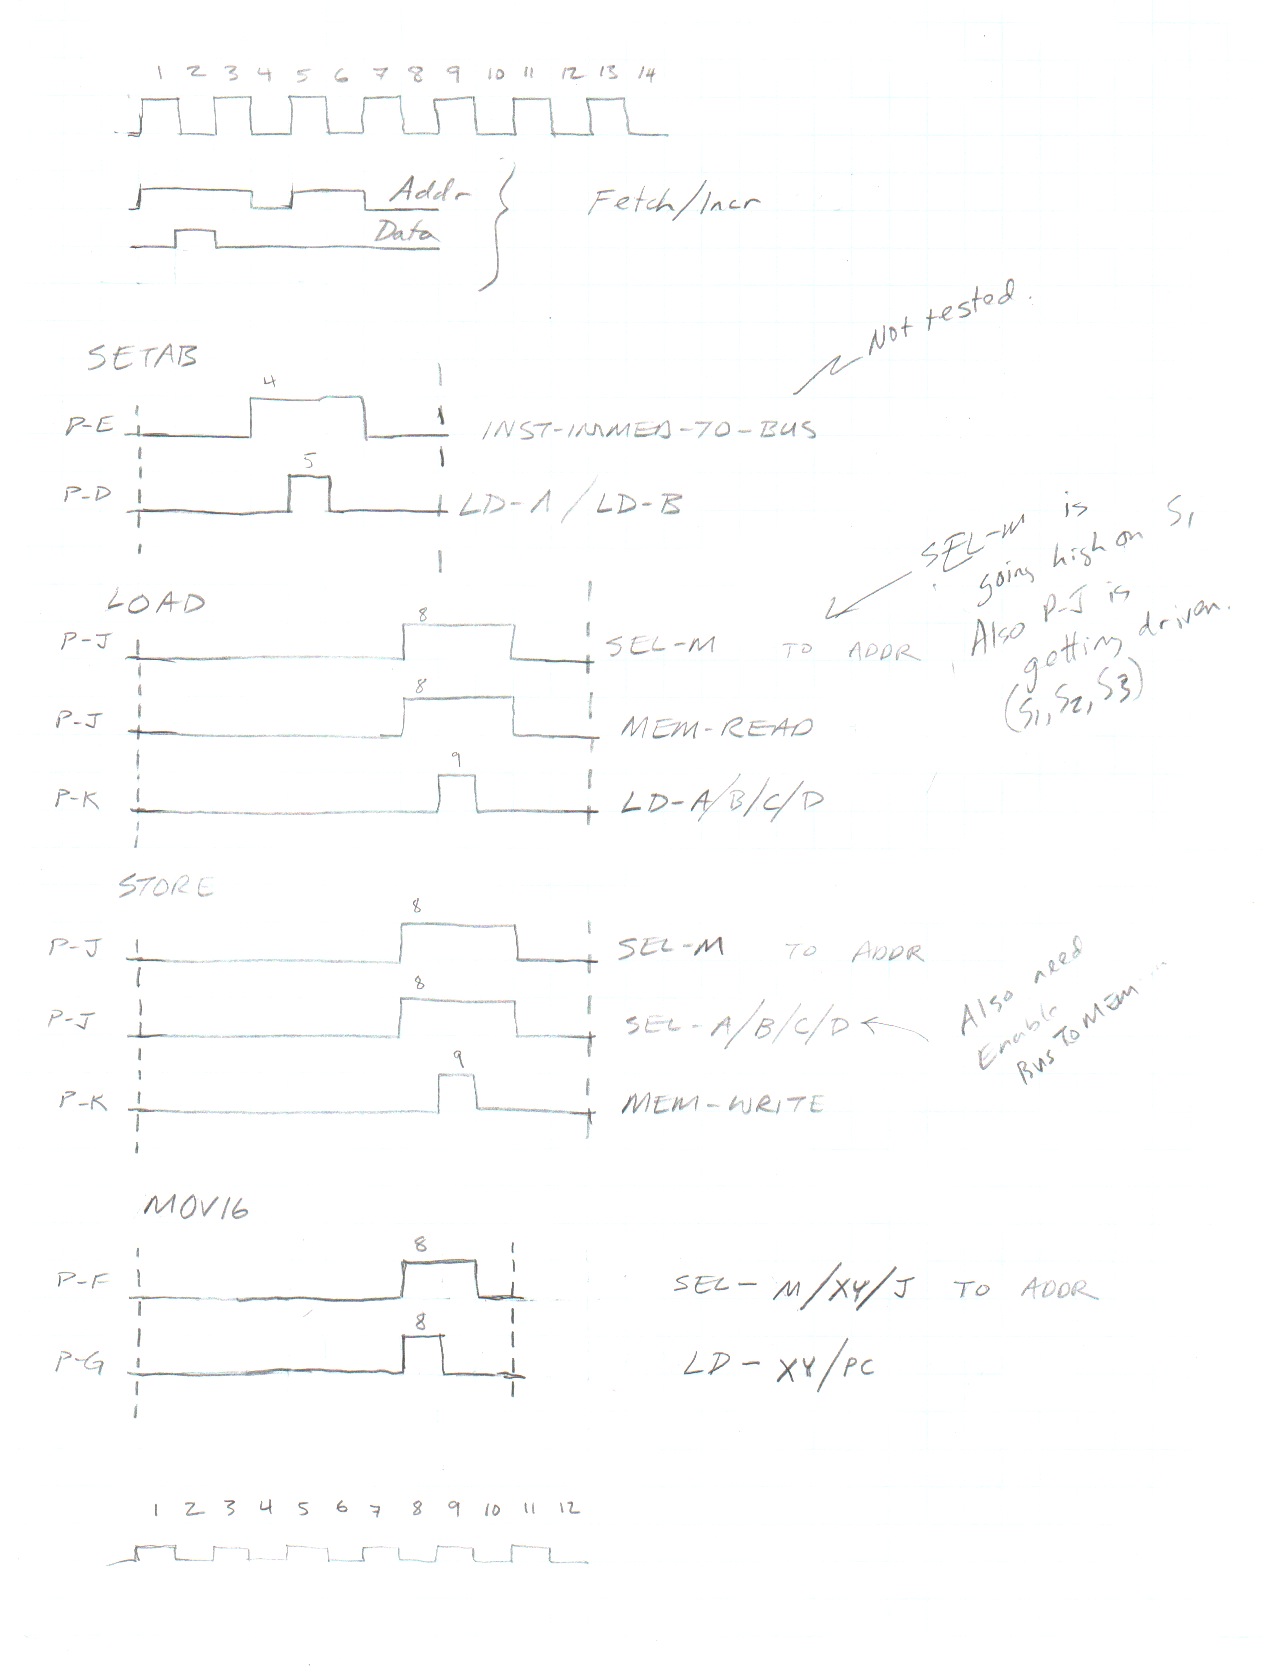 1 2 3 4 5 6 7 8 9 10 11 12 13 14
Addr
Fetch/Incr
Data
Not tested.
SETAB
4
P-E
INST-IMMED-TO-BUS
5
P-D
LD-A/LD-B
SEL-M is
going high on S1
Also P-J is
getting driven.
(S1, S2, S3)
LOAD
8
P-J
SEL-M TO ADDR
8
P-J
MEM-READ
9
P-K
LD-A/B/C/D
STORE
8
P-J
SEL-M TO ADDR
8
P-J
SEL-A/B/C/D
Also need
Enable
Bus To MEM
9
P-K
MEM-WRITE
MOV16
8
P-F
SEL-M/XY/J TO ADDR
8
P-G
LD-XY/PC
1 2 3 4 5 6 7 8 9 10 11 12